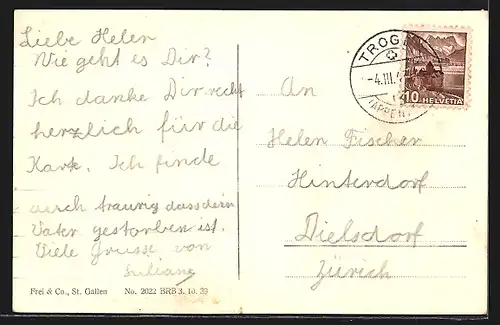 Liebe Helen
Wie geht es Dir?
Ich danke Dir recht
herzlich für die
Kart. Ich finde
auch traurig dass dein
Vater gestorben ist.
Viele Grüsse von
Juliane
Frei & Co., St. Gallen No. 2022 BRB 3. 10. 39
TROGEN
-4.III.
(APPENZ
10 HELVETIA
An
Helen Fischer
Hinterdorf
Dielsdorf
Zürich